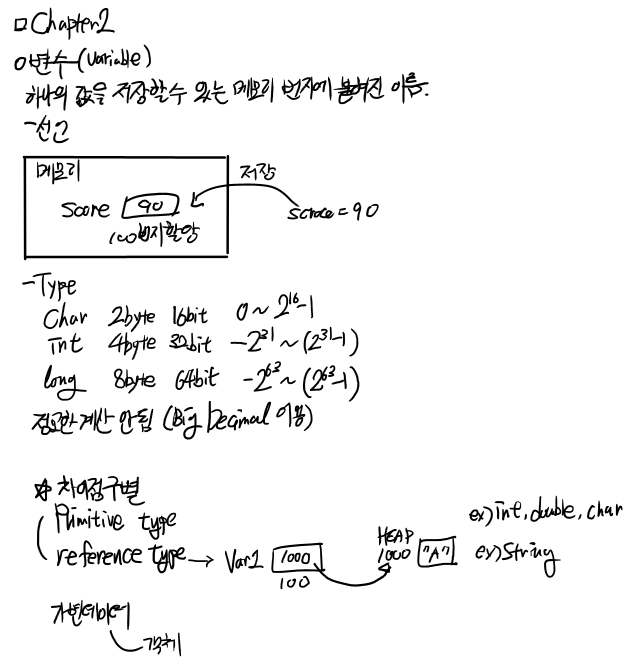 □ Chapter2
○ 변수 (Variable)
하나의 값을 저장할 수 있는 메모리 번지에 붙여진 이름.
-선언
메모리
저장
Score 90
score = 90
100번지할당
-Type
Char 2byte 16bit 0 ~ 2¹⁶-1
int 4byte 32bit -2³¹ ~ (2³¹-1)
long 8byte 64bit -2⁶³ ~ (2⁶³-1)
정교한 계산 안됨 (Big Decimal 이용)
☆ 차이점구별
Primitive type
ex) int, double, char
reference type → Var1 1000
100
HEAP
1000 "A"
ex) String
가변데이터
객체